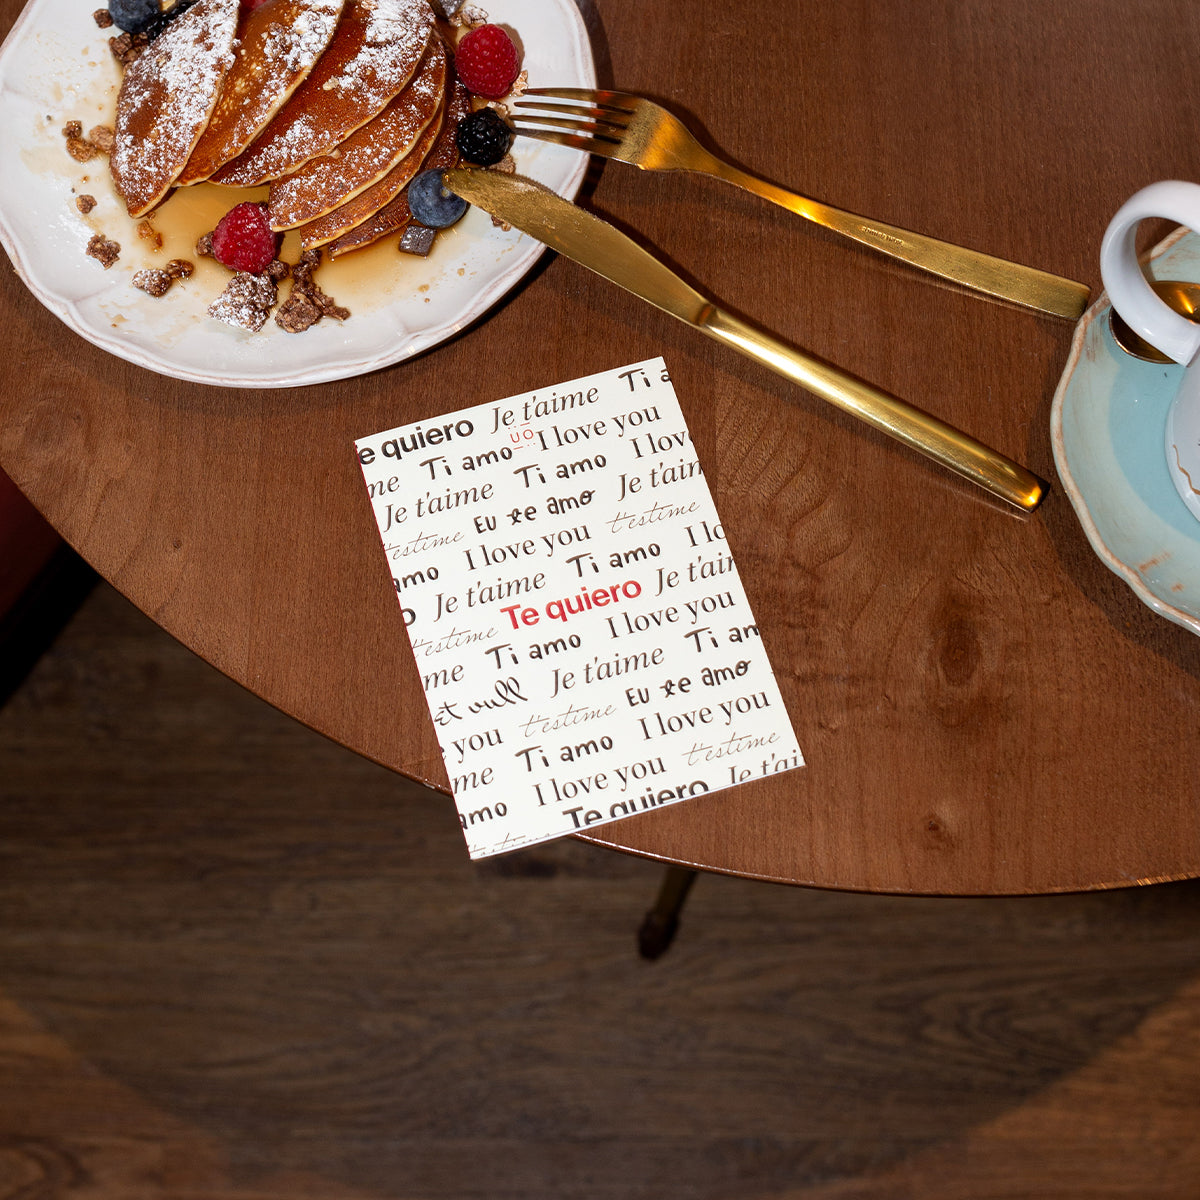 e quiero Je t'aime Ti a
Ti amo UO I love you
me Je t'aime Ti amo I lov
t'estime Eu te amo Je t'aim
amo I love you t'estime
o Je t'aime Ti amo I lo
t'estime Te quiero Je t'aim
me Ti amo I love you
et vull Je t'aime Ti am
you t'estime Eu te amo
me Ti amo I love you
amo I love you t'estime
t'estime Te quiero Je t'ai